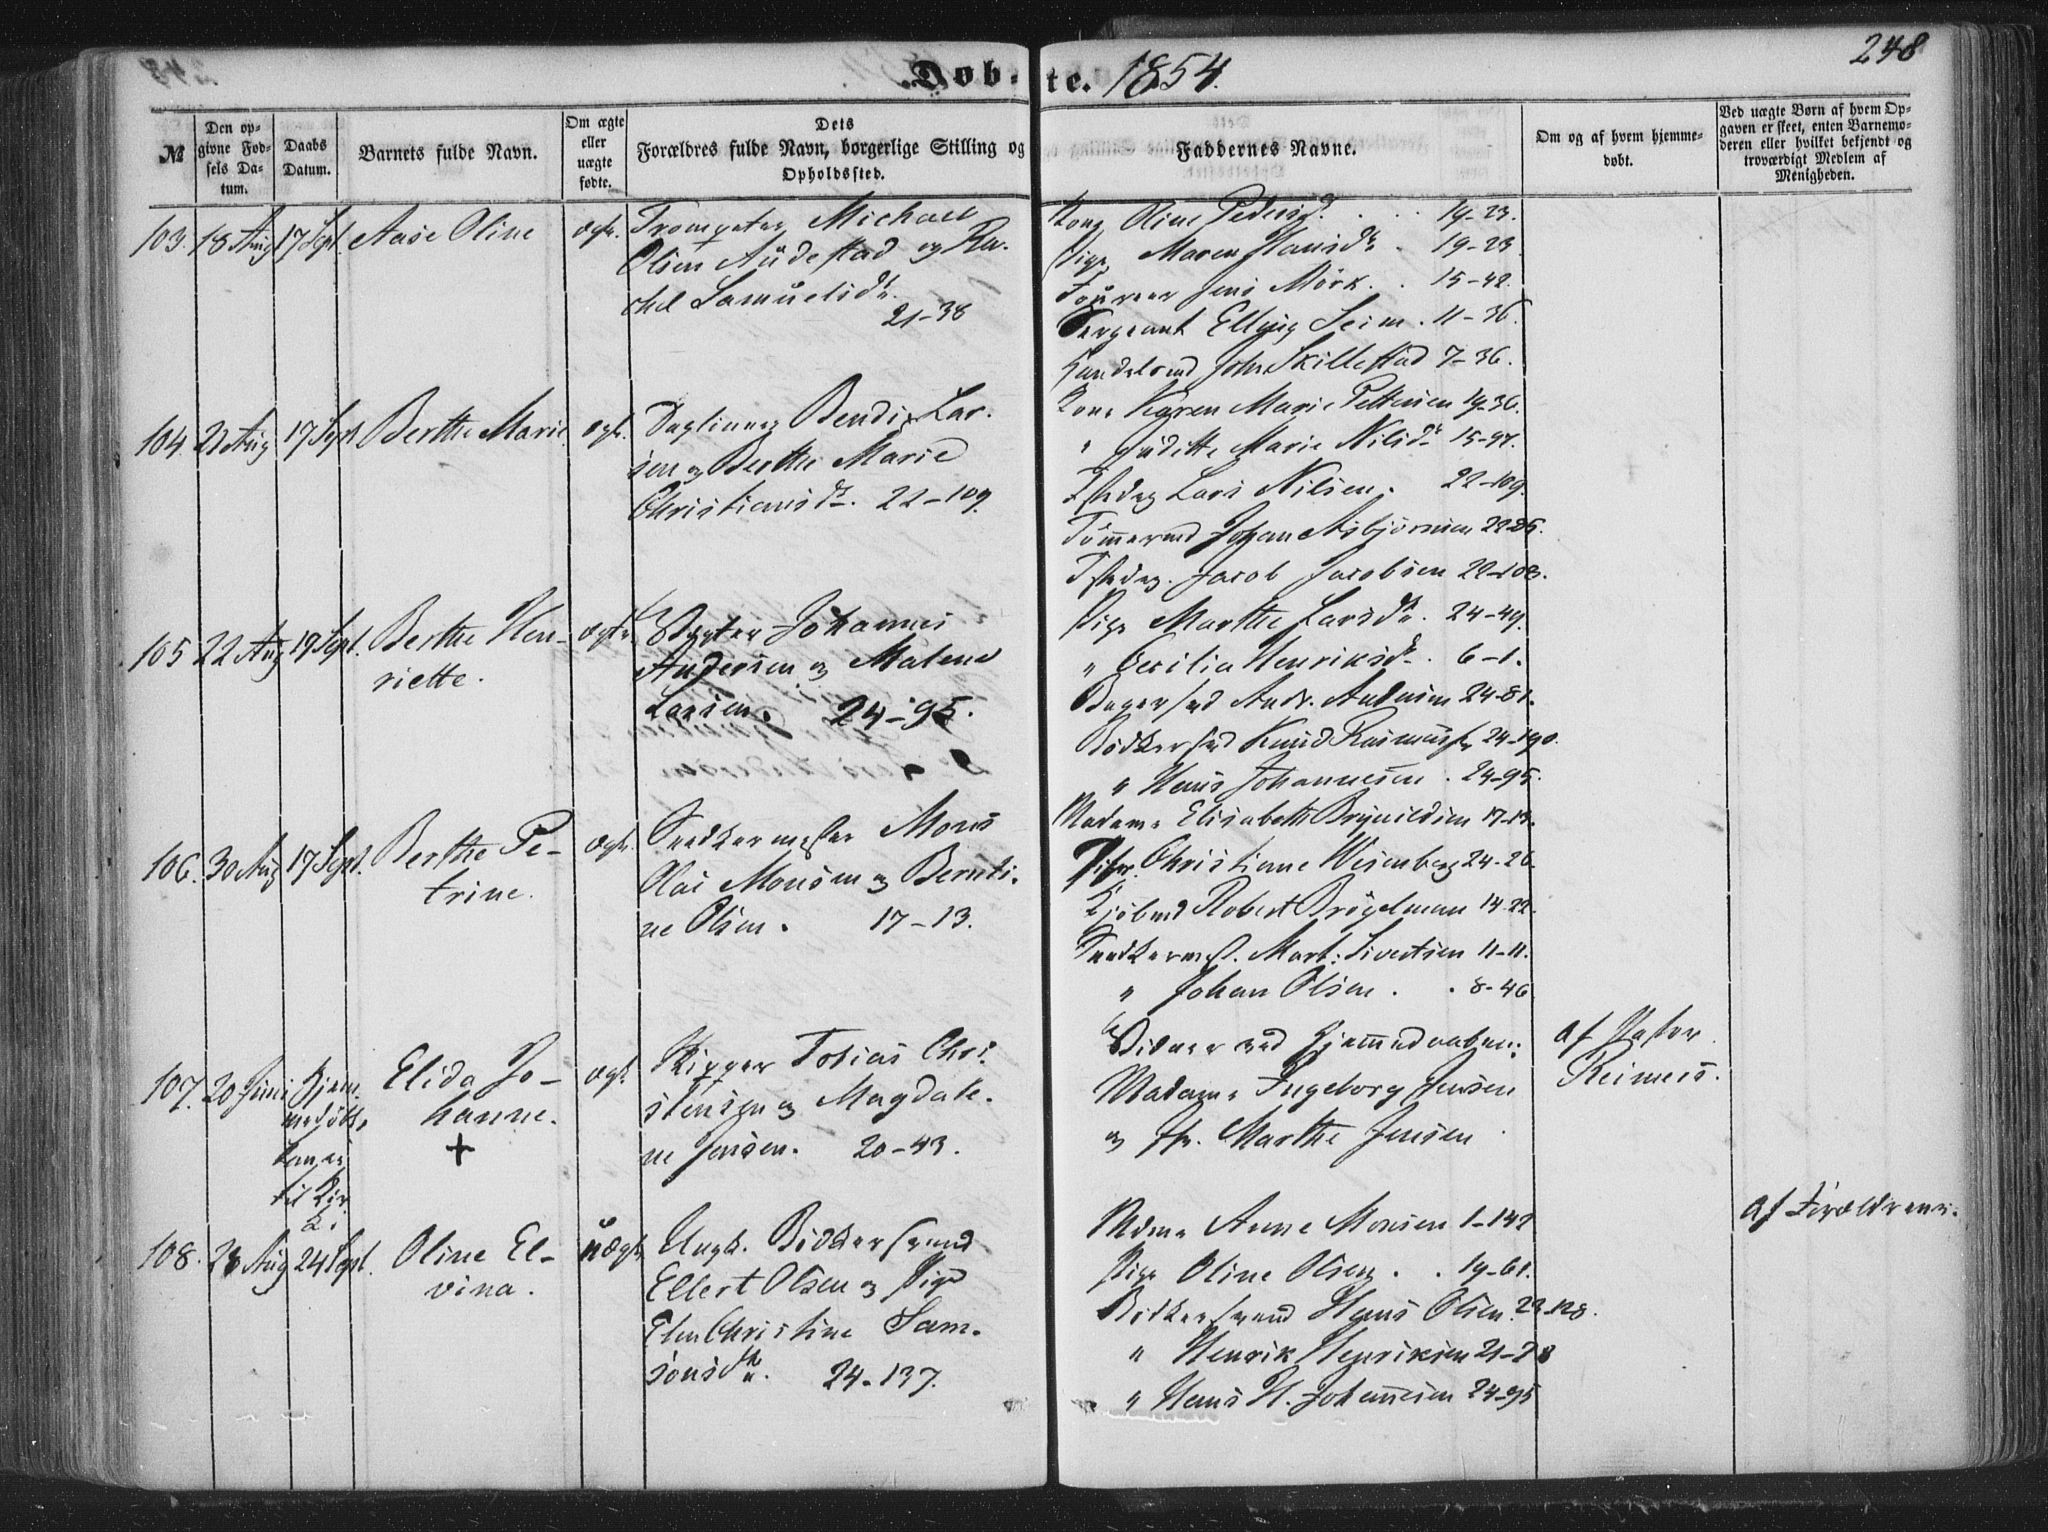 Døb-te. 1854.
248
№
Den opgivne Fødsels Datum.
Daabs Datum.
Barnets fulde Navn.
Om ægte eller uægte fødte.
Dets Forældres fulde Navn, borgerlige Stilling og Opholdssted.
Faddernes Navne.
Om og af hvem hjemmedøbt.
Ved uægte Børn af hvem Opgaven er skeet, enten Barnemoderen eller hvilket bekjendt og troværdigt Medlem af Menigheden.
103. 18 Aug 17 Sept. Aase Oline ægte.
Trompeter Michael
Olsen Audestad og Ra-
chel Samuelsdr.
21-38
Kone Oline Pedersd. 19-23.
Pige Maren Hansdr. 19-23
Foureer Jens Mörk. 15-42.
Sergeant Elling Seim. 11-36.
Handelsmd John Skillestad 7-36.
104. 21 Aug 17 Sept Berthe Marie ægte.
Dagleiner Bendix Lar-
sen og Berthe Marie
Christiansdr. 22-109.
Kone Karen Marie Pettersen 19-36.
" Judithe Marie Nilsdr 15-97.
Lars Nilsen. 22-109.
Tömmermd Johan Asbjörnsen 22-26.
Jacob Jacobsen 22-108.
105 22 Aug 19 Sept. Berthe Hen-
riette.
ægte.
Johannes
Andersen og Malene
Larsen. 24-95.
Pige Marthe Larsdr. 24-49.
" Cecilia Henriksdr. 6-1.
Bagersvd Andr. Andersen 24-81.
Bödkersvd Knud Rasmussen 24-190.
" Hans Johannesen. 24-95.
106. 30 Aug 17 Sept. Berthe Pe-
trine.
ægte.
Snedkermester Mons
Olai Monsen og Bernti-
ne Olsen. 17-13.
Madame Elisabeth Brynildsen 17-13.
Jfr. Christiane Wesenberg 24-26.
Kjöbmd Robert Brögelmann 14-22.
Snedkermst. Mart: Sivertsen 11-11.
" Johan Olsen. 8-46
107. 20 Juni Hjem-
medöbt,
kom ei
til Kir-
ke.
Elida Jo-
hanne.
+
ægte.
Skipper Tobias Chri-
stensen og Magdale-
ne Jensen. 20-43.
Vidner ved Hjemmedaaben:
Madame Ingeborg Jensen
og Jfr. Marthe Jensen
af Pastor
Reimers.
108. 28 Aug 24 Sept. Oline El-
vina.
uægte
Ungk. Bödkersvend
Ellert Olsen og Pige
Elen Christine Sam-
sonsdr. 24-137.
Mdme Anne Monsen 1-142
Pige Oline Olsen. 19-61.
Bödkersvend Hans Olsen. 23-128.
" Henrik Henriksen 21-28
" Hans H. Johannesen 24-95
af Forældrene.